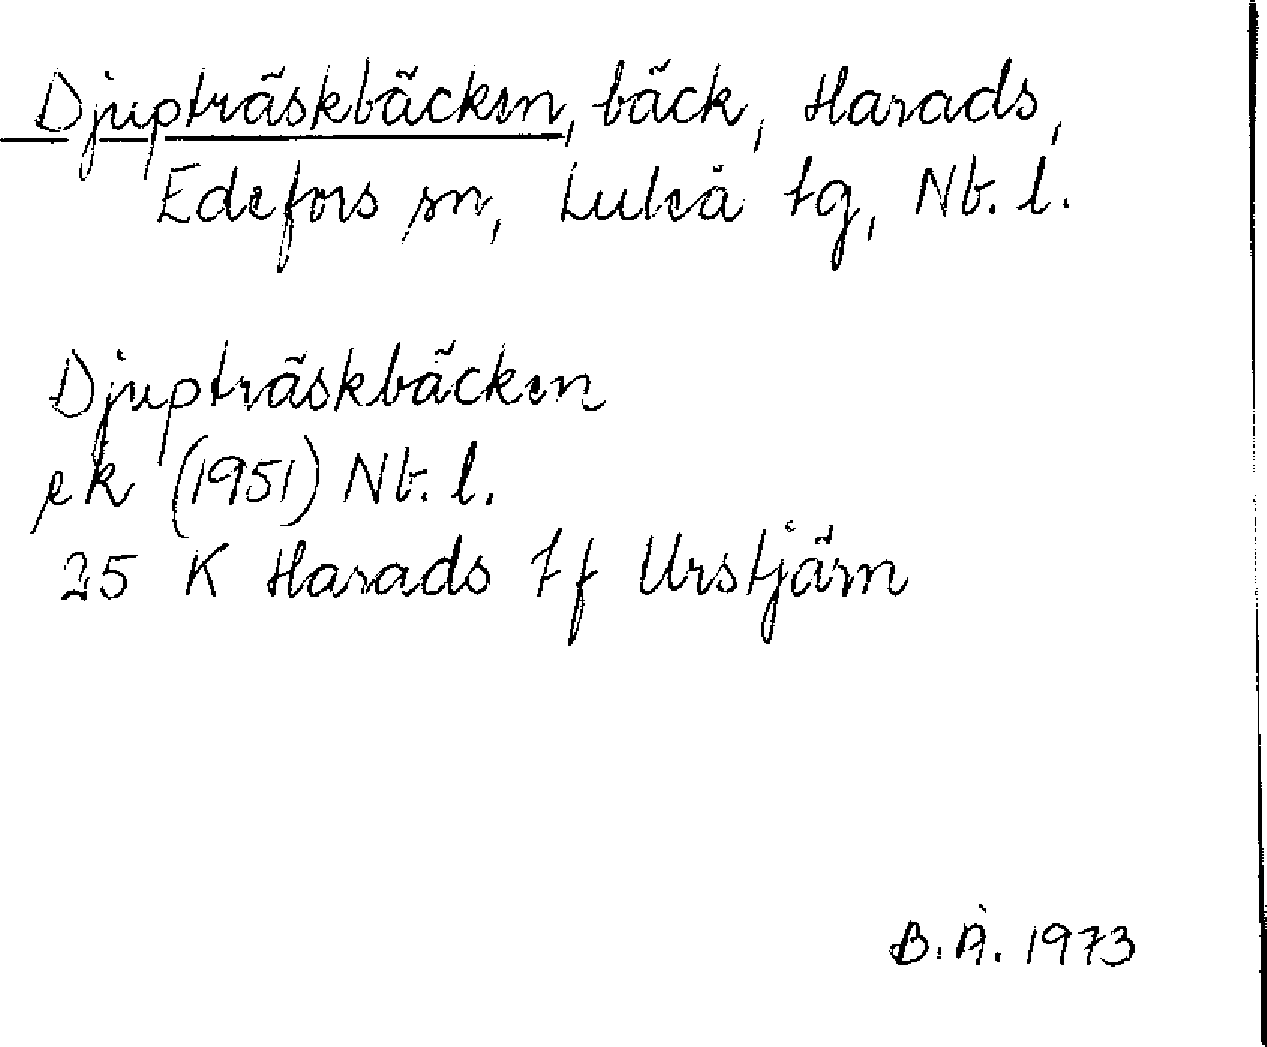 Djupträskbäcken, bäck, Harads,
Edefors sn, Luleå tg, Nb. l.
Djupträskbäcken
ek (1951) Nb. l.
25 K Harads tf Urstjärn
B.Å. 1973